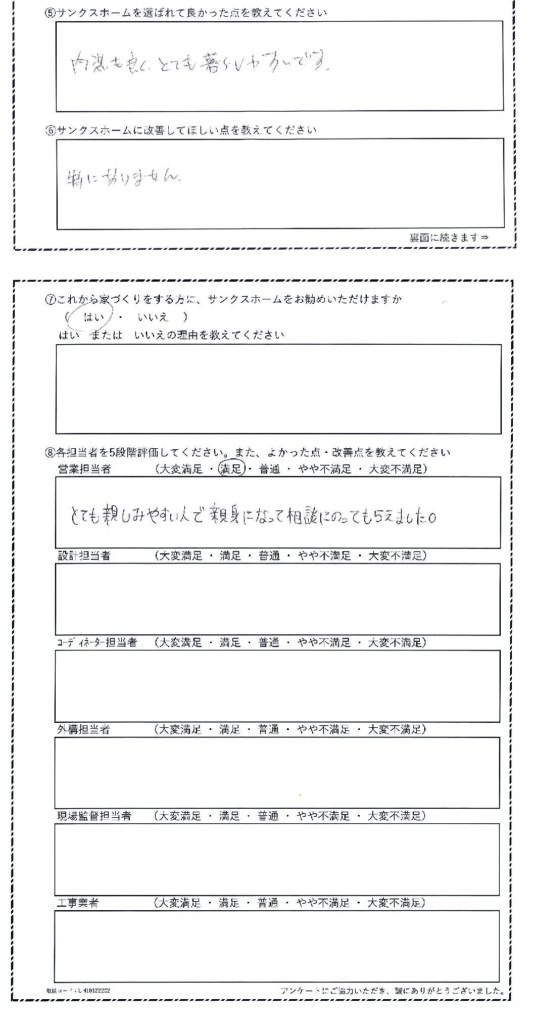 ⑤サンクスホームを選ばれて良かった点を教えてください
内装も良く、とても暮らしやすいです。
⑥サンクスホームに改善してほしい点を教えてください
特にありません。
裏面に続きます⇒
⑦これから家づくりをする方に、サンクスホームをお勧めいただけますか
( はい ・ いいえ )
はい または いいえの理由を教えてください
⑧各担当者を5段階評価してください。また、よかった点・改善点を教えてください
営業担当者 (大変満足 ・ 満足 ・ 普通 ・ やや不満足 ・ 大変不満足)
とても親しみやすい人で親身になって相談にのってもらえました。
設計担当者 (大変満足 ・ 満足 ・ 普通 ・ やや不満足 ・ 大変不満足)
コーディネーター担当者 (大変満足 ・ 満足 ・ 普通 ・ やや不満足 ・ 大変不満足)
外構担当者 (大変満足 ・ 満足 ・ 普通 ・ やや不満足 ・ 大変不満足)
現場監督担当者 (大変満足 ・ 満足 ・ 普通 ・ やや不満足 ・ 大変不満足)
工事業者 (大変満足 ・ 満足 ・ 普通 ・ やや不満足 ・ 大変不満足)
アンケートにご協力いただき、誠にありがとうございました。